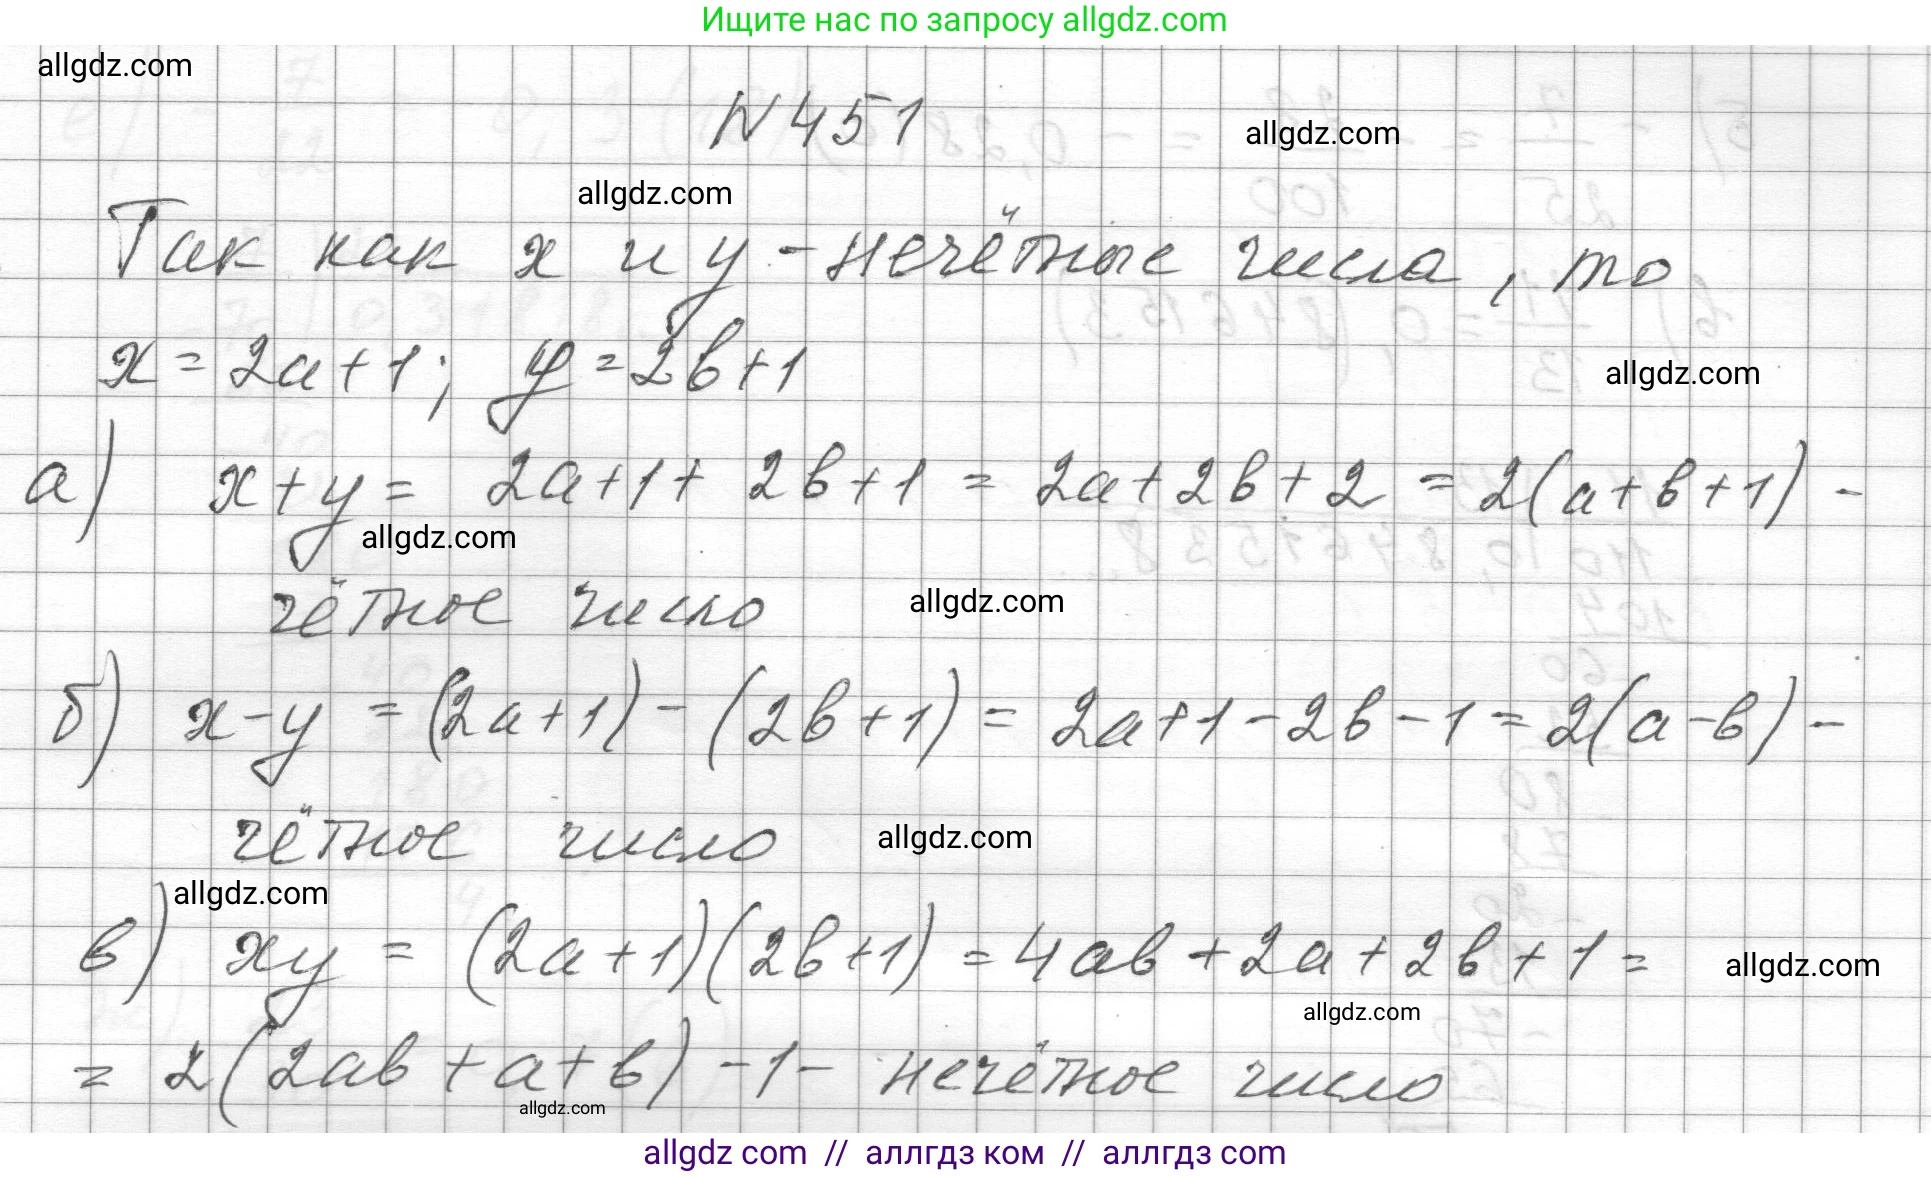 Ищите нас по запросу allgdz.com
allgdz.com
N 451
allgdz.com
allgdz.com
Так как x и y - нечётные числа, то
x = 2a + 1; y = 2b + 1
allgdz.com
а) x + y = 2a + 1 + 2b + 1 = 2a + 2b + 2 = 2(a + b + 1) -
allgdz.com
чётное число
allgdz.com
б) x - y = (2a + 1) - (2b + 1) = 2a + 1 - 2b - 1 = 2(a - b) -
чётное число
allgdz.com
allgdz.com
в) xy = (2a + 1)(2b + 1) = 4ab + 2a + 2b + 1 =
allgdz.com
allgdz.com
= 2(2ab + a + b) - 1 - нечётное число
allgdz.com
allgdz com // аллгдз ком // аллгдз com